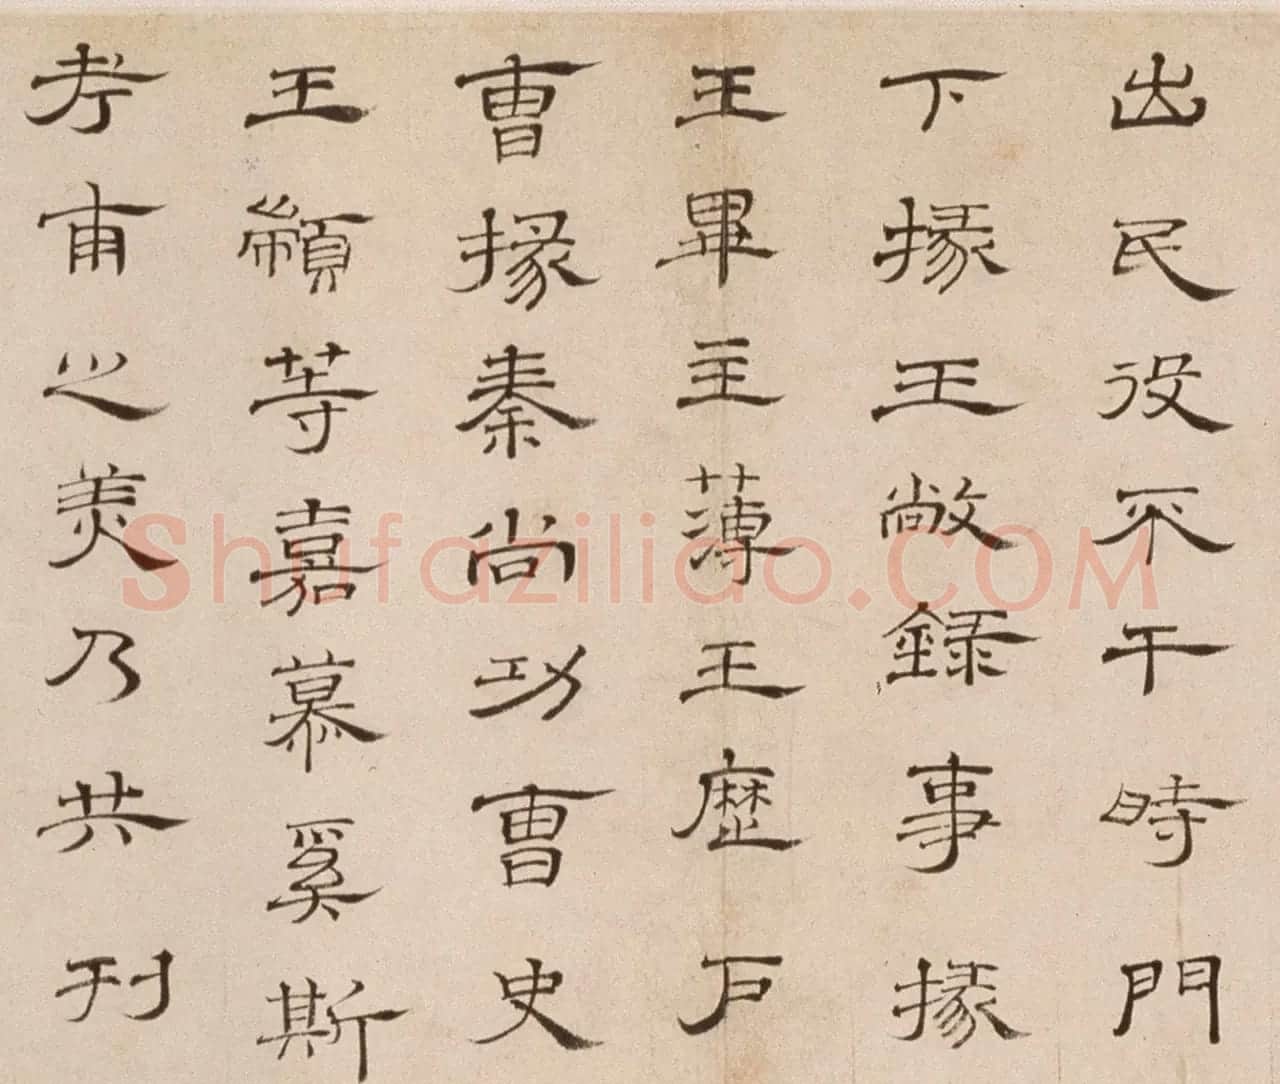 出民役不干時門
下掾王敞錄事掾
王畢主薄王歷戶
曹掾秦尚功曹史
王顓等嘉慕奚斯
考甫之美乃共刊
Shufaziliao.COM